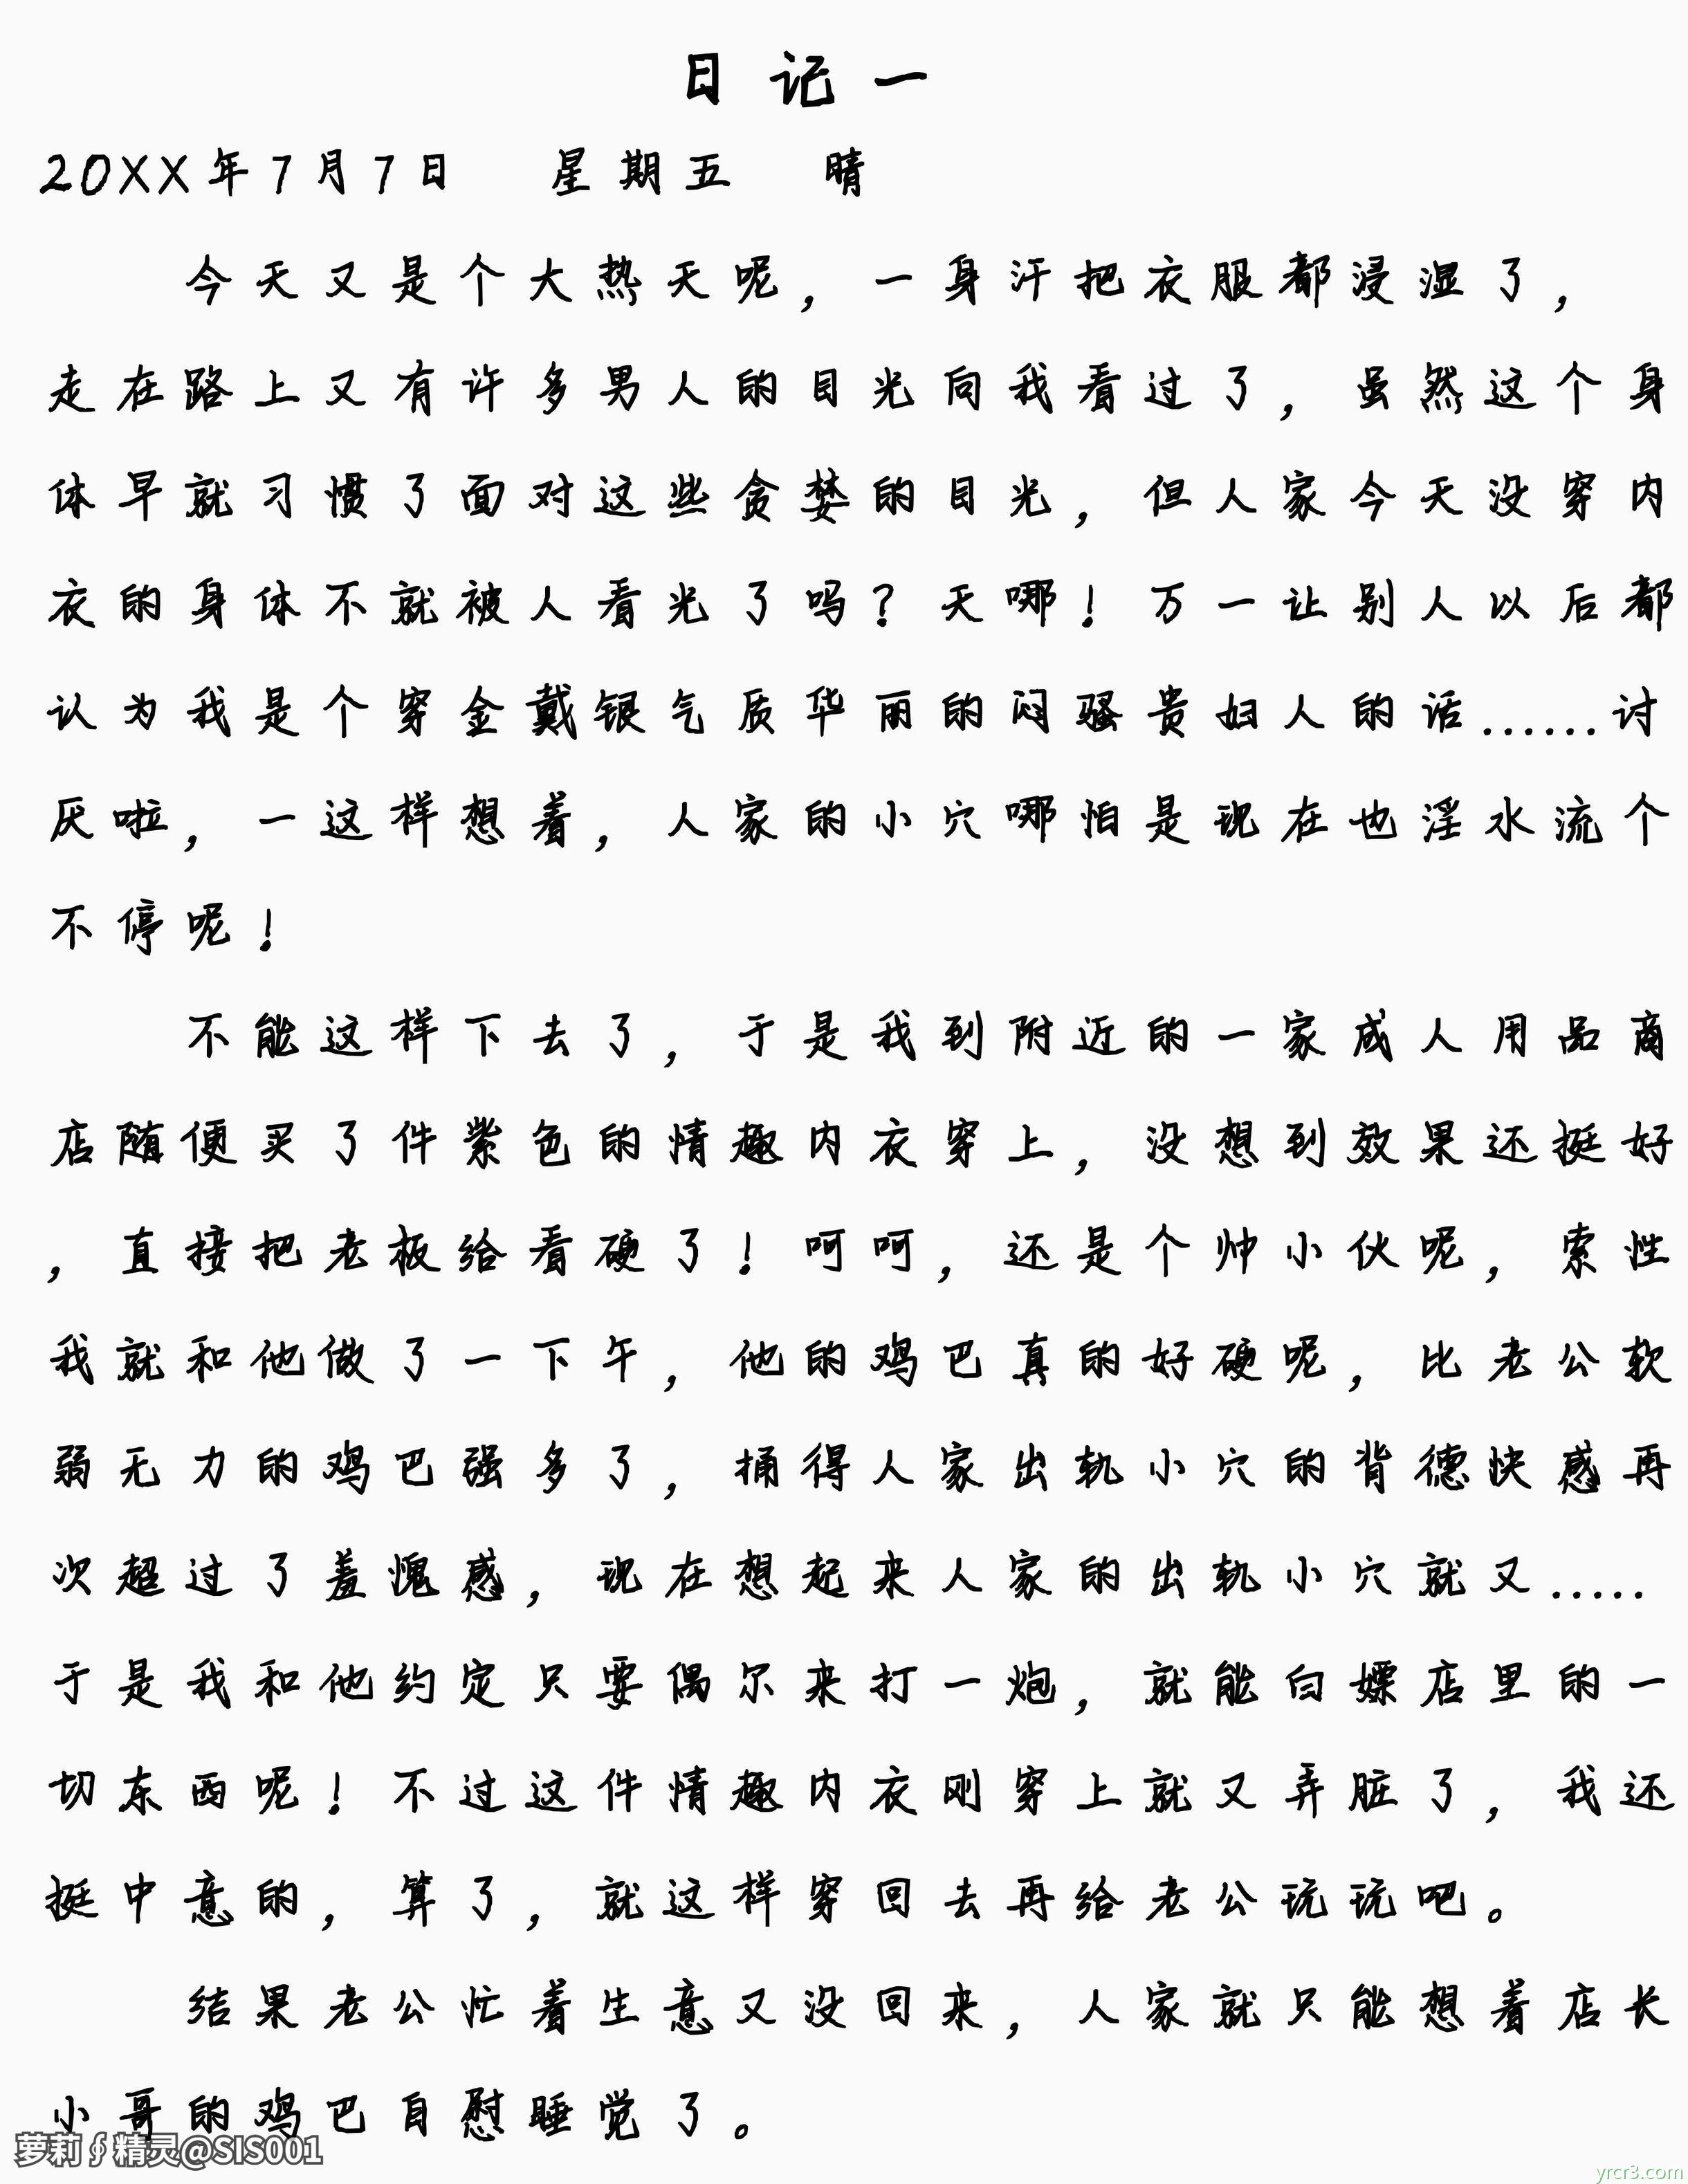 日记一
20XX年7月7日 星期五 晴
今天又是个大热天呢，一身汗把衣服都浸湿了，
走在路上又有许多男人的目光向我看过了，虽然这个身
体早就习惯了面对这些贪婪的目光，但人家今天没穿内
衣的身体不就被人看光了吗？天哪！万一让别人以后都
认为我是个穿金戴银气质华丽的闷骚贵妇人的话……讨
厌啦，一这样想着，人家的小穴哪怕是现在也淫水流个
不停呢！
不能这样下去了，于是我到附近的一家成人用品商
店随便买了件紫色的情趣内衣穿上，没想到效果还挺好
，直接把老板给看硬了！呵呵，还是个帅小伙呢，索性
我就和他做了一下午，他的鸡巴真的好硬呢，比老公软
弱无力的鸡巴强多了，捅得人家出轨小穴的背德快感再
次超过了羞愧感，现在想起来人家的出轨小穴就又.....
于是我和他约定只要偶尔来打一炮，就能白嫖店里的一
切东西呢！不过这件情趣内衣刚穿上就又弄脏了，我还
挺中意的，算了，就这样穿回去再给老公玩玩吧。
结果老公忙着生意又没回来，人家就只能想着店长
小哥的鸡巴自慰睡觉了。
萝莉∮精灵@SIS001
yrcr3.com